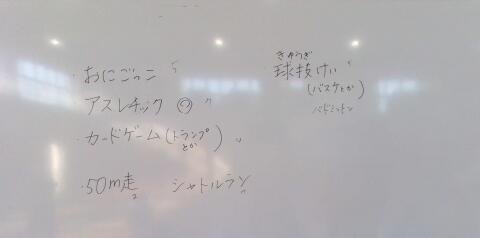 ・おにごっこ 〃
アスレチック ◎ 〃
・カードゲーム(トランプとか) 〃
・50m走 シャトルラン
球技けい 〃
きゅうぎ
(バスケとか)
バドミントン